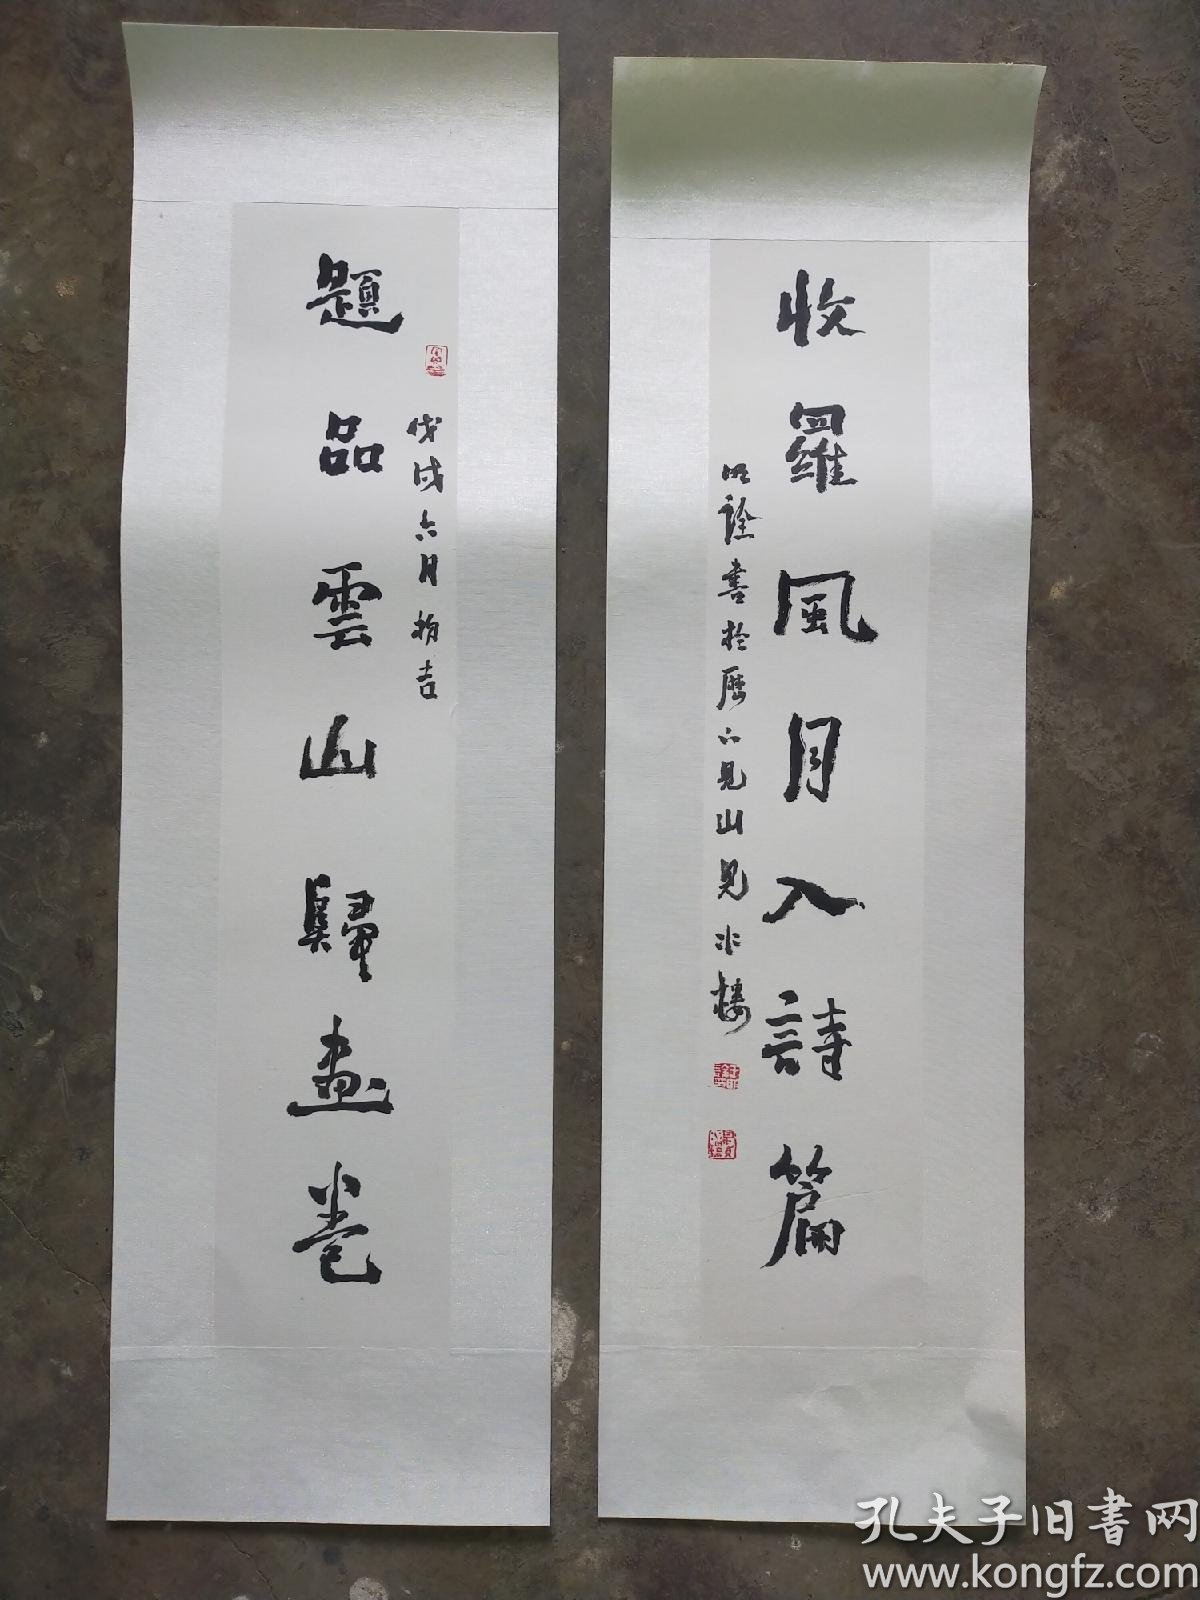 戊戌六月初吉
題品雲山歸畫卷
收羅風月入詩篇
明詮書於歷下見山見水樓
孔夫子旧书网
www.kongfz.com